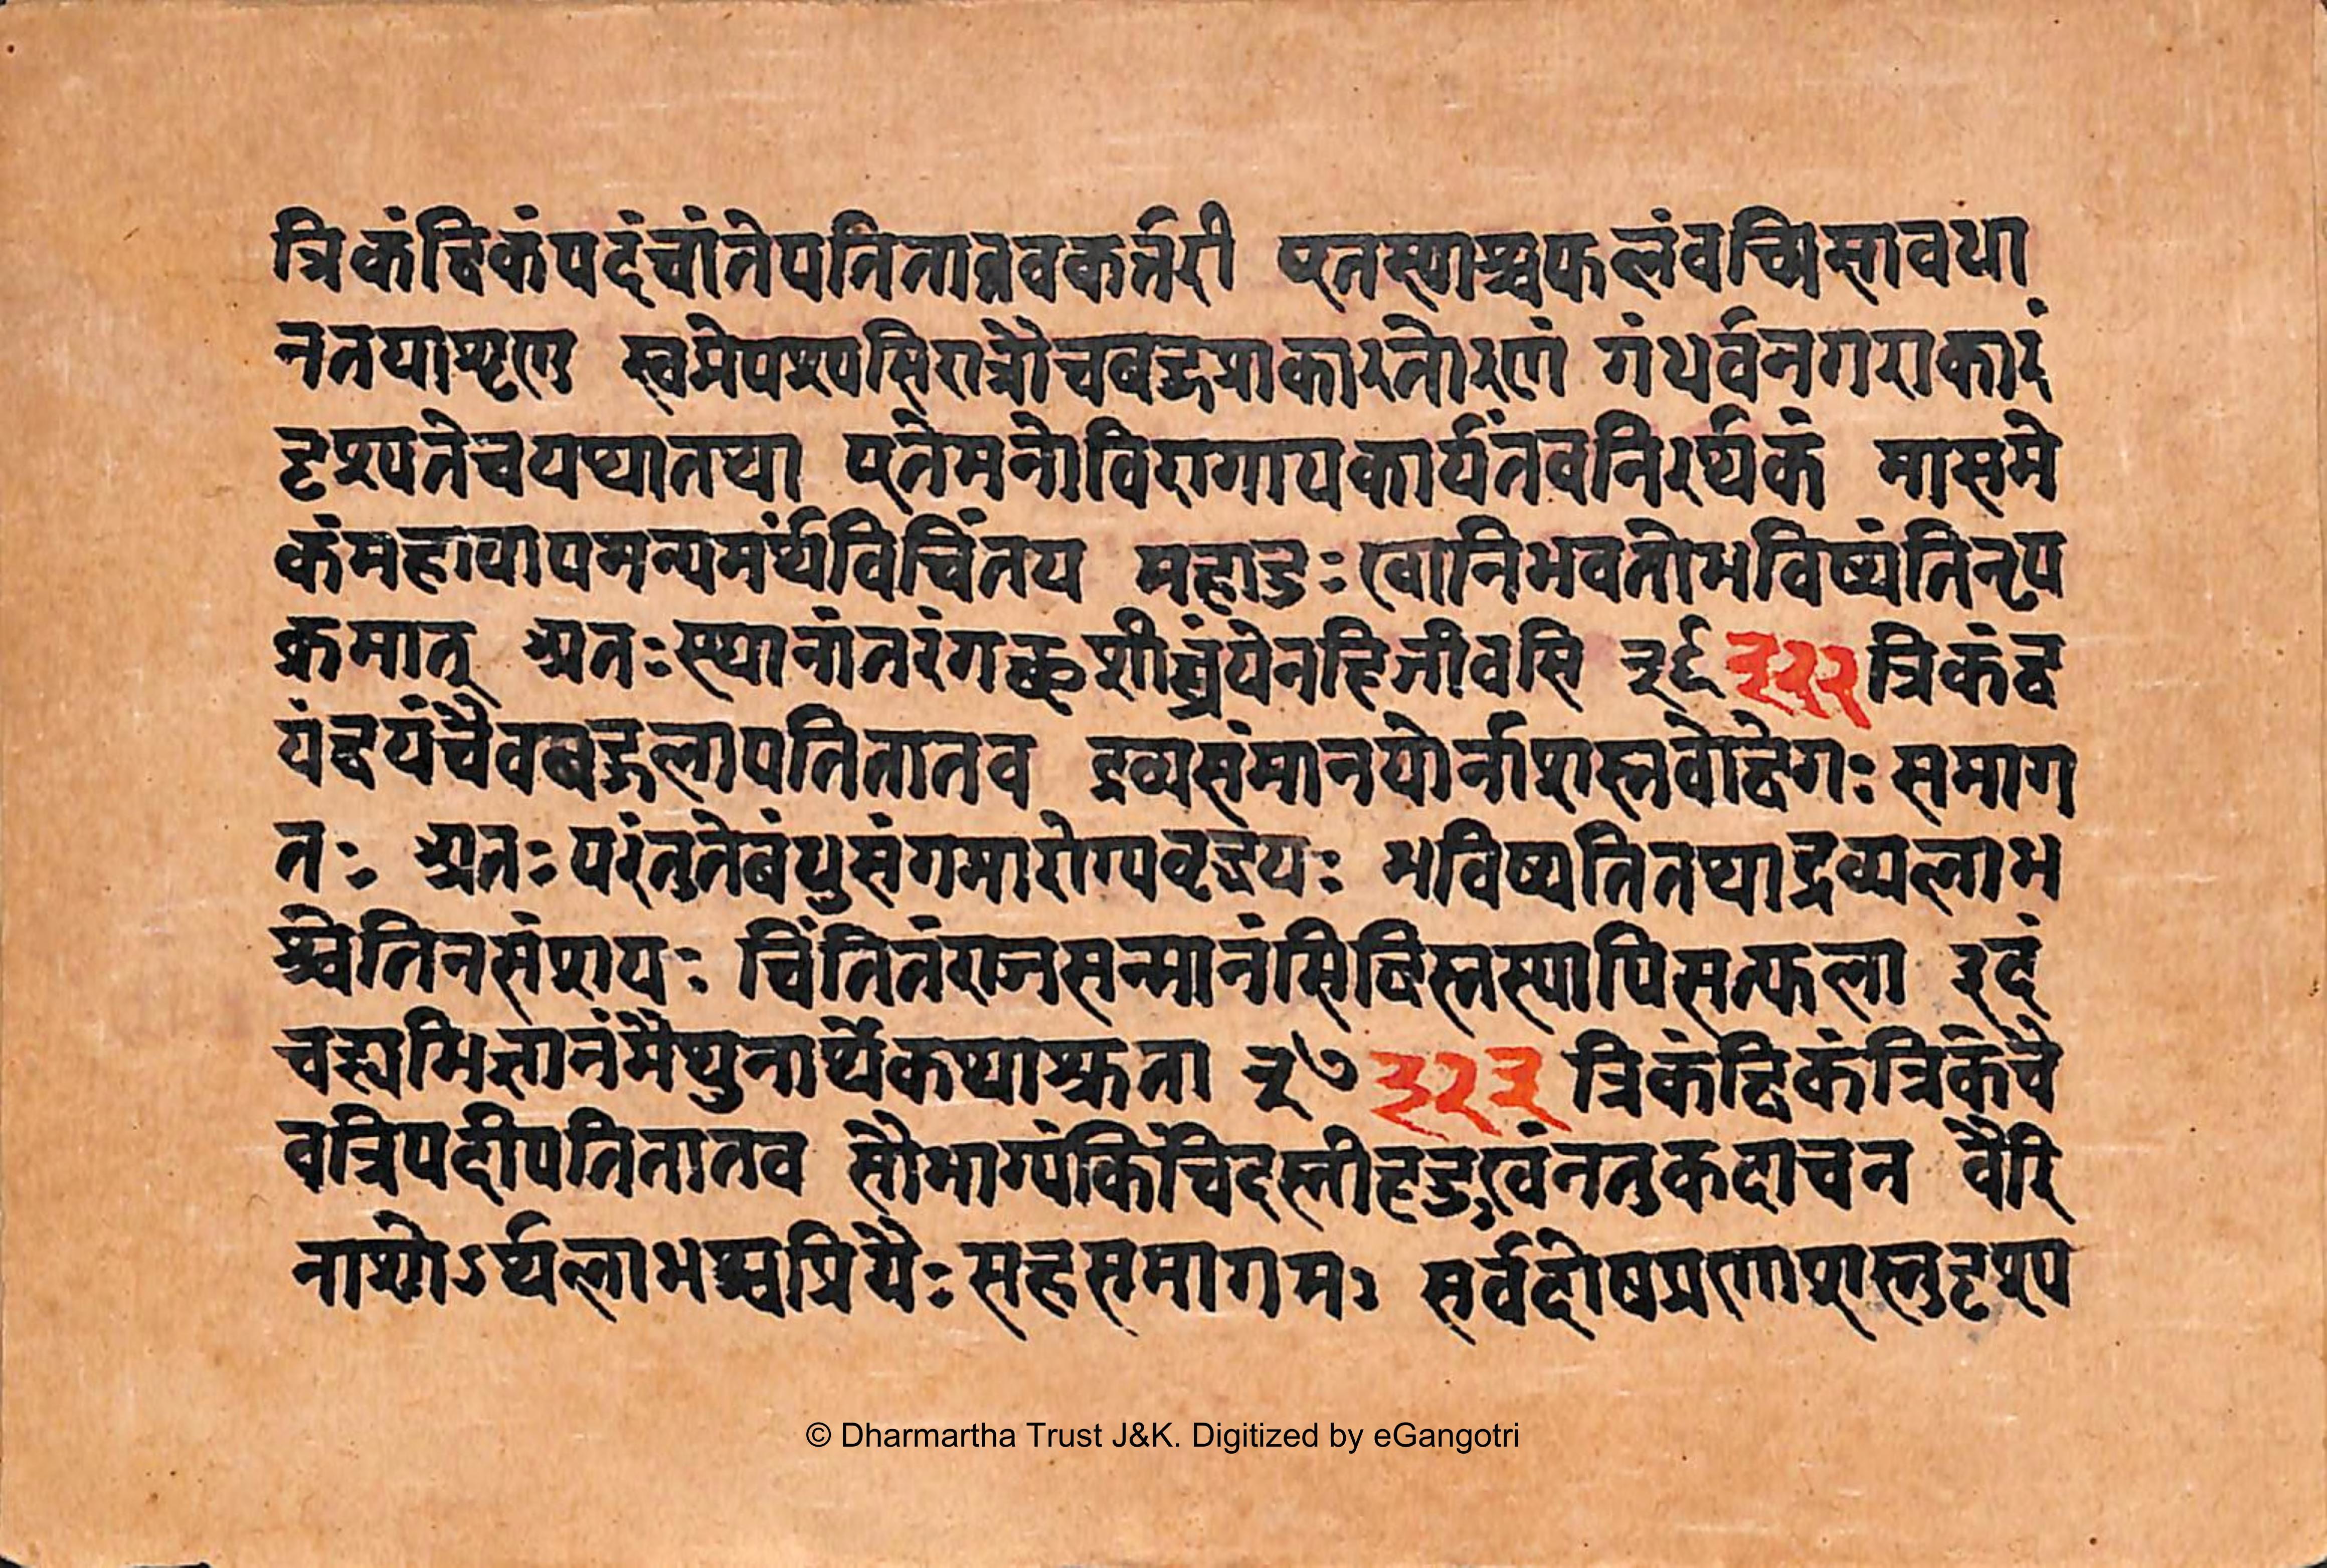 त्रिकंद्विकंपदंचांतेपतितात्रवकर्त्तरी एतस्याश्चफलंवच्मिसावधा
नतयाशृणु स्वप्नेपश्यसिरात्रौचबहुप्राकारतोरणं गंधर्वनगराकारं
दृश्यतेचयथातथा एतेमनोविरागायकार्यंतवनिरर्थकं मासमे
कंमहावापमन्यमर्थंविचिंतय महादुःखानिभवतोभविष्यंतिनृप
क्रमात् अतःस्थानांतरंगच्छशीघ्रंयेनहिजीवसि ३६ ३२२ त्रिकंद्व
यंद्वयंचैवबहुलापतितातव द्रव्यसंमानयोर्नाशस्तवोद्वेगः समाग
तः अतः परंतुतेबंधुसंगमारोग्यवृद्धयः भविष्यतितथाद्रव्यलाभ
श्चेतिनसंशयः चिंतितंराजसन्मानंसिद्धिस्तस्यापिसत्फला इदं
चह्यभिज्ञानंमैथुनार्थेकथाश्रुता ३७ ३२३ त्रिकंद्विकंत्रिकंचै
वत्रिपदीपतितातव सौभाग्यंकिंचिदस्तीहदुःखंनतुकदाचन वैरि
नाशोऽर्थलाभश्चप्रियैः सहसमागमः सर्वदोषप्रणाशस्तुदृश्य
© Dharmartha Trust J&K. Digitized by eGangotri